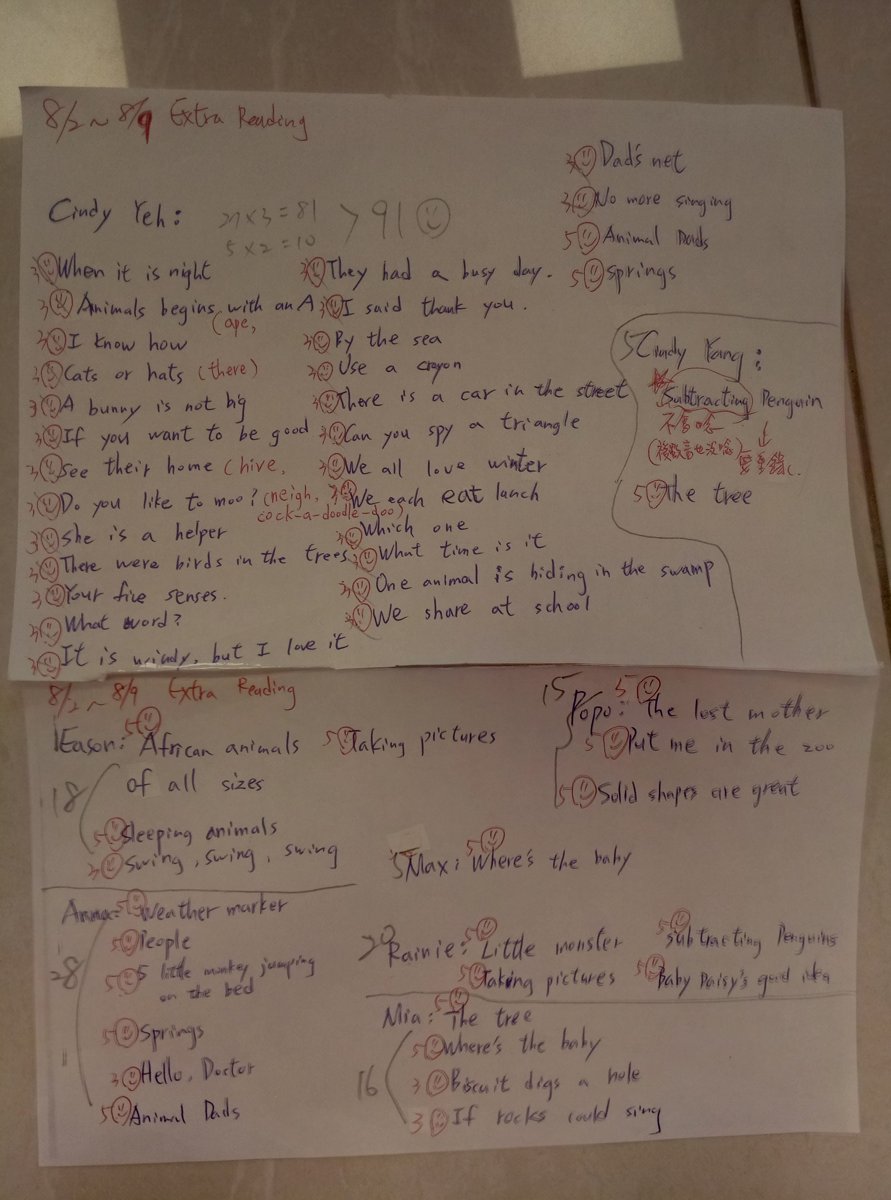 8/2~8/9 Extra Reading
Cindy Yeh: 27×3=81
5×2=10 > 91
3 When it is night
3 Animals begins with an A (ape,
3 I know how
3 Cats or hats (there)
3 A bunny is not big
3 If you want to be good
3 See their home (hive,
3 Do you like to moo? (neigh, cock-a-doodle-doo)
3 She is a helper
3 There were birds in the trees
3 Your five senses.
3 What word?
3 It is windy, but I love it
3 They had a busy day.
3 I said thank you.
3 By the sea
3 Use a crayon
3 There is a car in the street
3 Can you spy a triangle
3 We all love winter
3 We each eat lunch
3 Which one
3 What time is it
3 One animal is hiding in the swamp
3 We share at school
3 Dad's net
3 No more singing
5 Animal Dads
5 Springs
5 Cindy Yang:
Subtracting Penguin
5 The tree
8/2~8/9 Extra Reading
Eason: 5 African animals
of all sizes
5 Taking pictures
18
5 Sleeping animals
3 Swing, swing, swing
Anna: 5 Weather marker
5 People
5 5 little monkey jumping
on the bed
28
5 Springs
3 Hello, Doctor
5 Animal Dads
15 Popo: 5 The lost mother
5 Put me in the zoo
5 Solid shapes are great
5 Max: 5 Where's the baby
20 Rainie: 5 Little monster
5 Subtracting Penguins
5 Taking pictures
5 Baby Daisy's good idea
Mia: 5 The tree
5 Where's the baby
16
3 Biscuit digs a hole
3 If rocks could sing